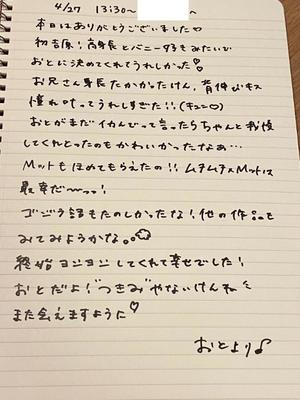 4/27 13:30~
本日はありがとうございました♡
初吉原!高身長とバニー好きみたいで
おとに決めてくれてうれしかった♡
お兄さん身長たかかったけん、背伸びキス
憧れ叶ってうれしすぎた!!(キュン♡)
おとがまだイカんでって言ったらちゃんと我慢
してくれとったのもかわいかったなぁ…
Mットもほめてもらえたの!!ムチムチ×Mットは
最幸だ〜っっ!
ゴジラ話もたのしかったな!他の作品も
みてみようかな。。
終始ヨシヨシしてくれて幸せでした!
おとだよ!"つきみ"やないけんね
また会えますように♡
おとより♪